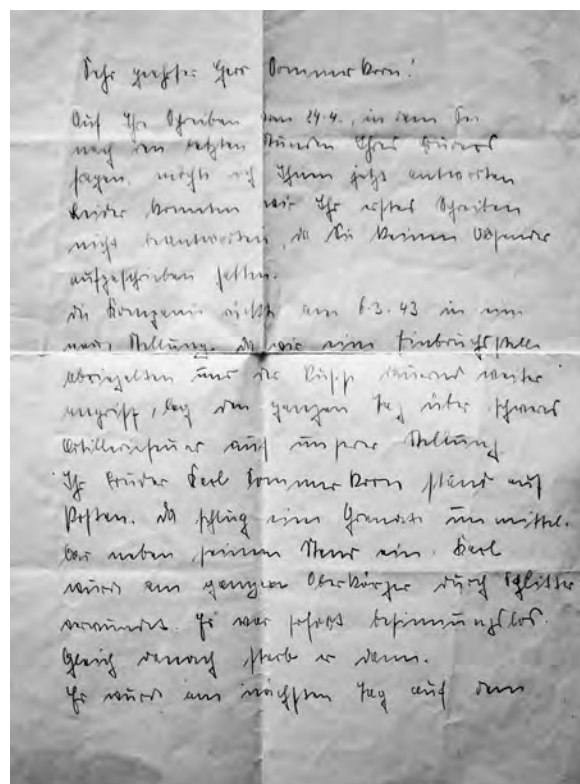 Sehr geehrter Herr Sommerkorn!
Auf Ihr Schreiben vom 24.4., in dem Sie
nach den letzten Stunden Ihres Bruders
fragen, möchte ich Ihnen jetzt antworten
Leider konnten wir Ihr erstes Schreiben
nicht beantworten, da Sie keinen Absender
aufgeschrieben hatten.
Die Kompanie rückte am 6.3.43 in eine
neue Stellung. Da wir eine Einbruchstelle
abriegelten und der Russe dauernd weiter
angriff, lag den ganzen Tag über schweres
Artilleriefeuer auf unserer Stellung.
Ihr Bruder Karl Sommerkorn stand auf
Posten. Da schlug eine Granate unmittel-
bar neben seinem Stand ein. Karl
wurde am ganzen Oberkörper durch Splitter
verwundet. Er war sofort besinnungslos.
Gleich danach starb er dann.
Er wurde am nächsten Tag auf dem